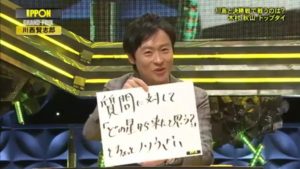 IPPON
GRAND PRIX
川西賢志郎
決勝戦で戦うのは?
木村 秋山 トップタイ
質問に対して
「どの星から来たと思う?」
とちょっと